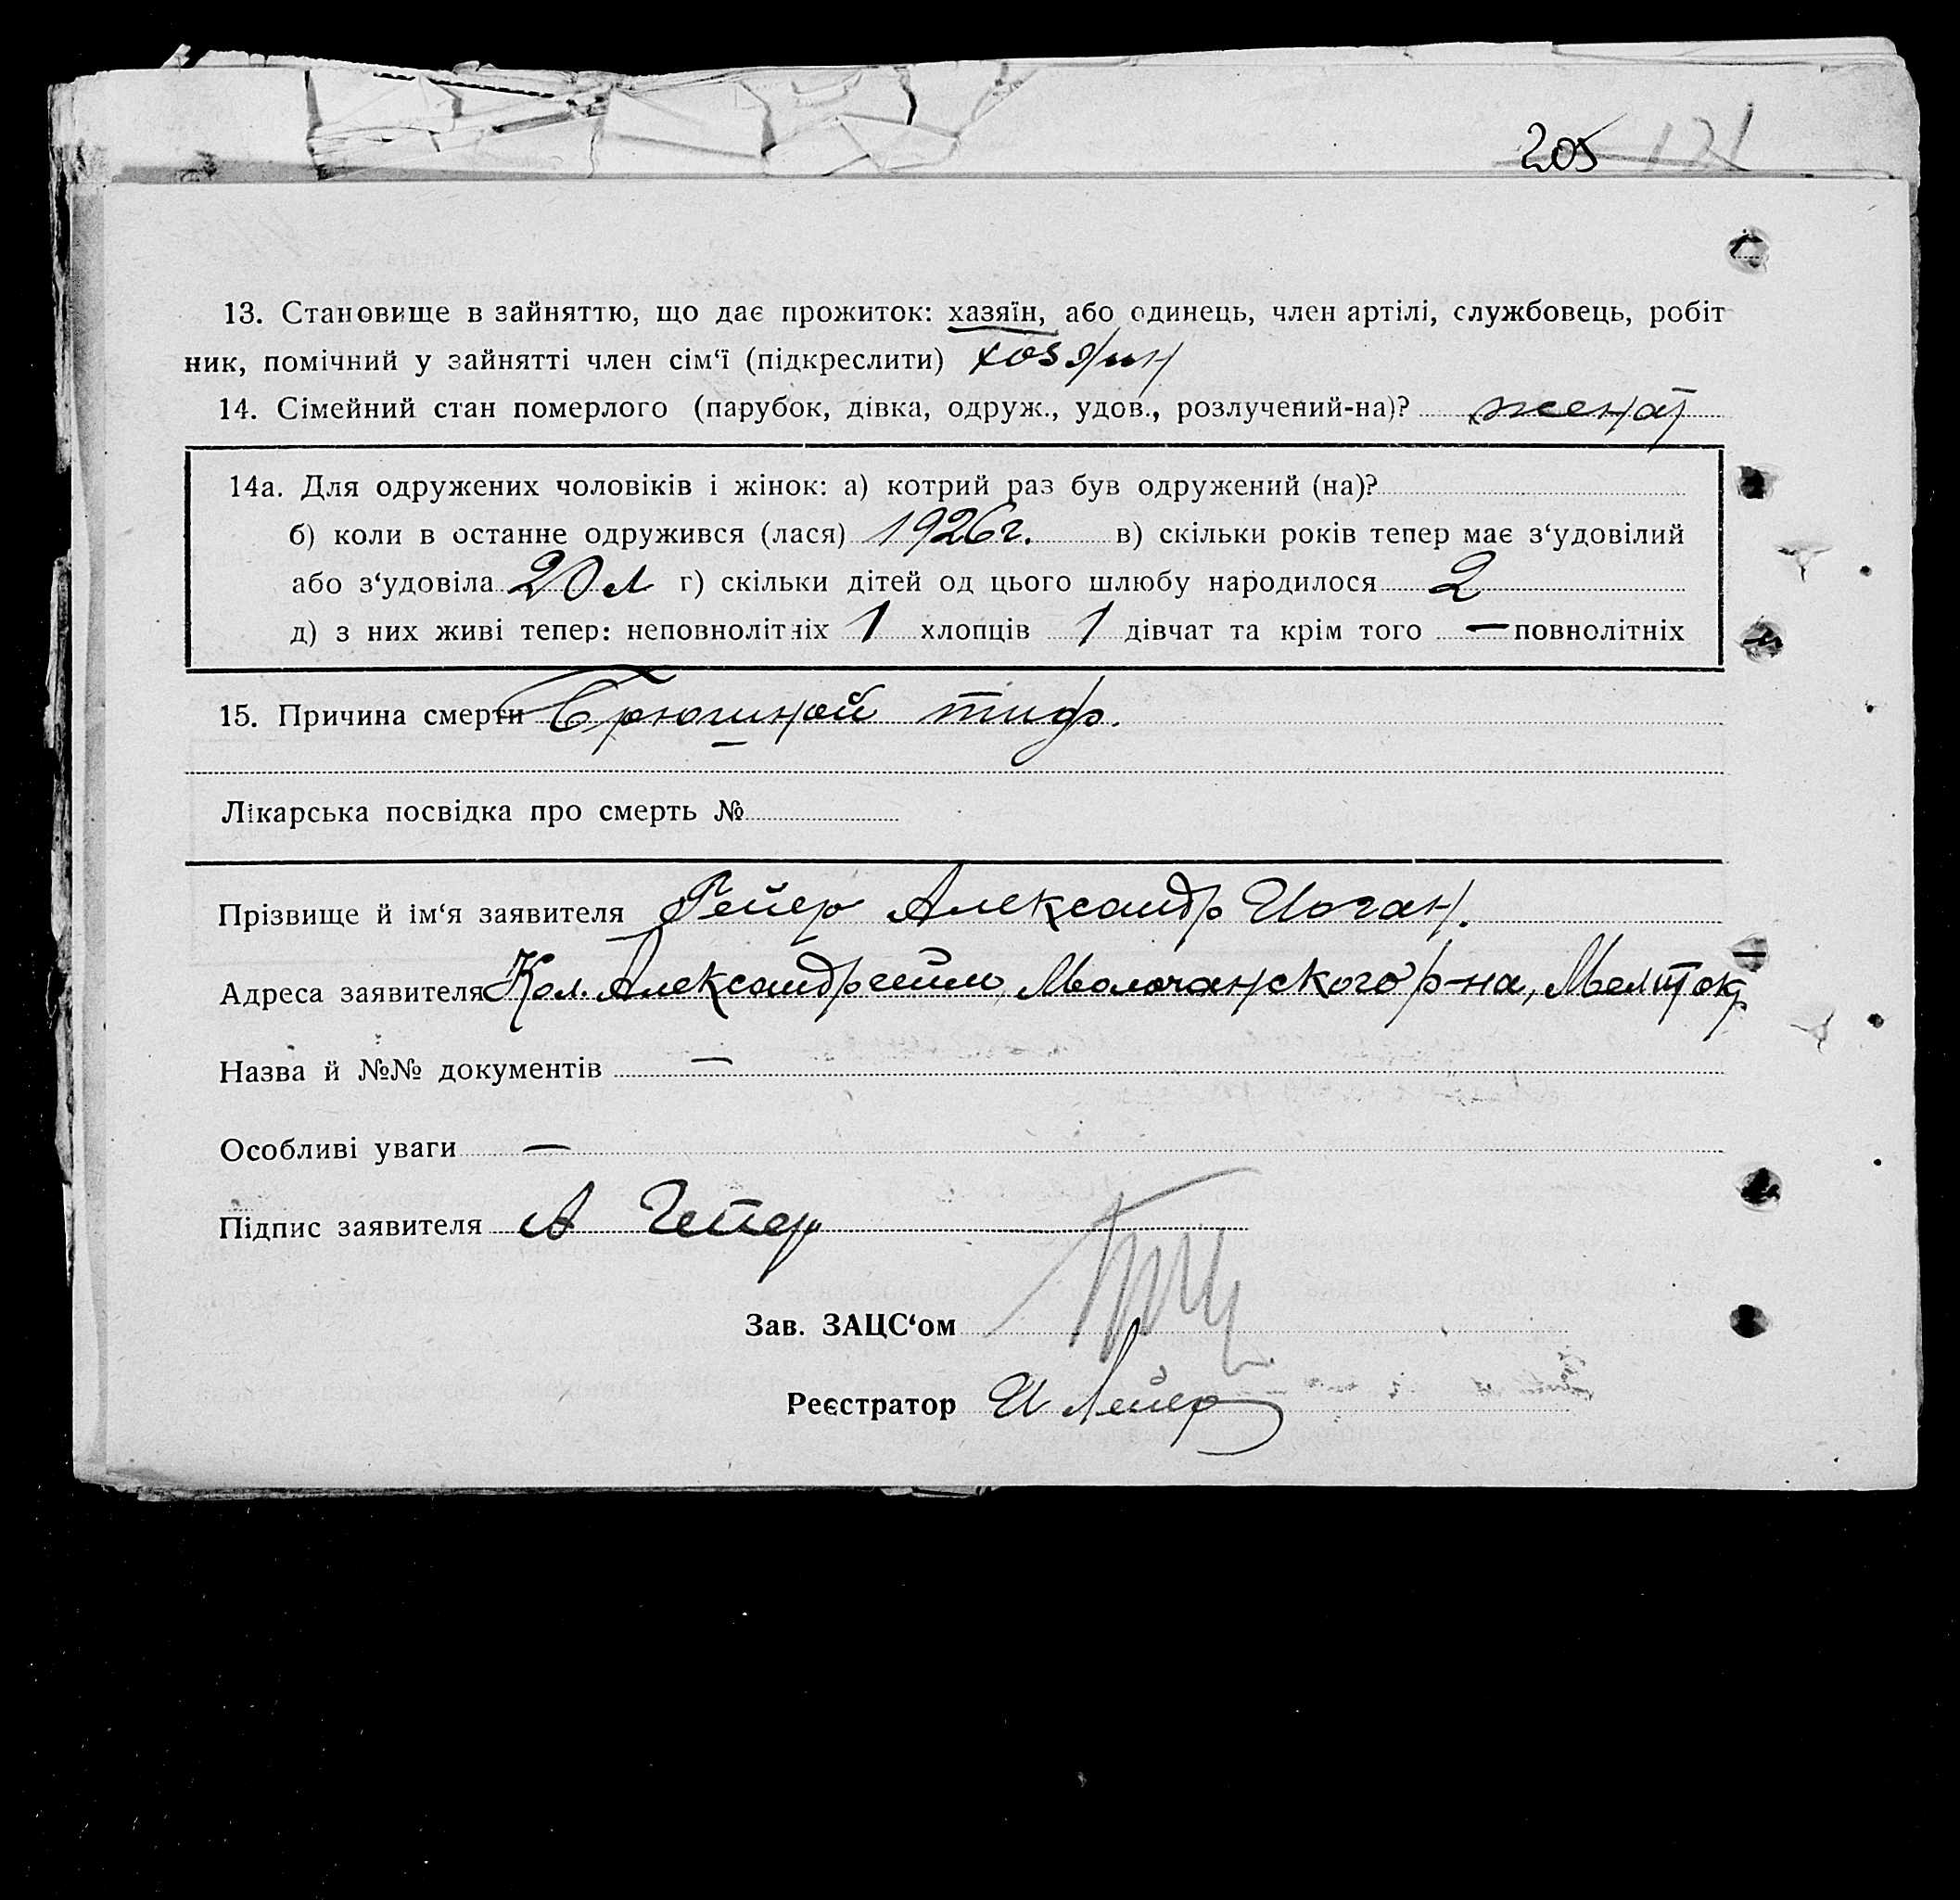 205 121
13. Становище в зайняттю, що дає прожиток: хазяїн, або одинець, член артілі, службовець, робіт
ник, помічний у зайнятті член сім‘ї (підкреслити) хозяин
14. Сімейний стан померлого (парубок, дівка, одруж., удов., розлучений-на)? женат
14а. Для одружених чоловіків і жінок: а) котрий раз був одружений (на)?
б) коли в останнє одружився (лася) 1926г. в) скільки років тепер має з‘удовілий
або з‘удовіла 20 л г) скільки дітей од цього шлюбу народилося 2
д) з них живі тепер: неповнолітніх 1 хлопців 1 дівчат та крім того — повнолітніх
15. Причина смерти Брюшной тиф.
Лікарська посвідка про смерть №
Прізвище й ім‘я заявителя Гейер Александр Иоган.
Адреса заявителя Кол. Александргейм, Молочанского р-на, Мелит окр
Назва й №№ документів —
Особливі уваги —
Підпис заявителя А Гейер
Зав. ЗАЦС‘ом
Реєстратор И Лейер